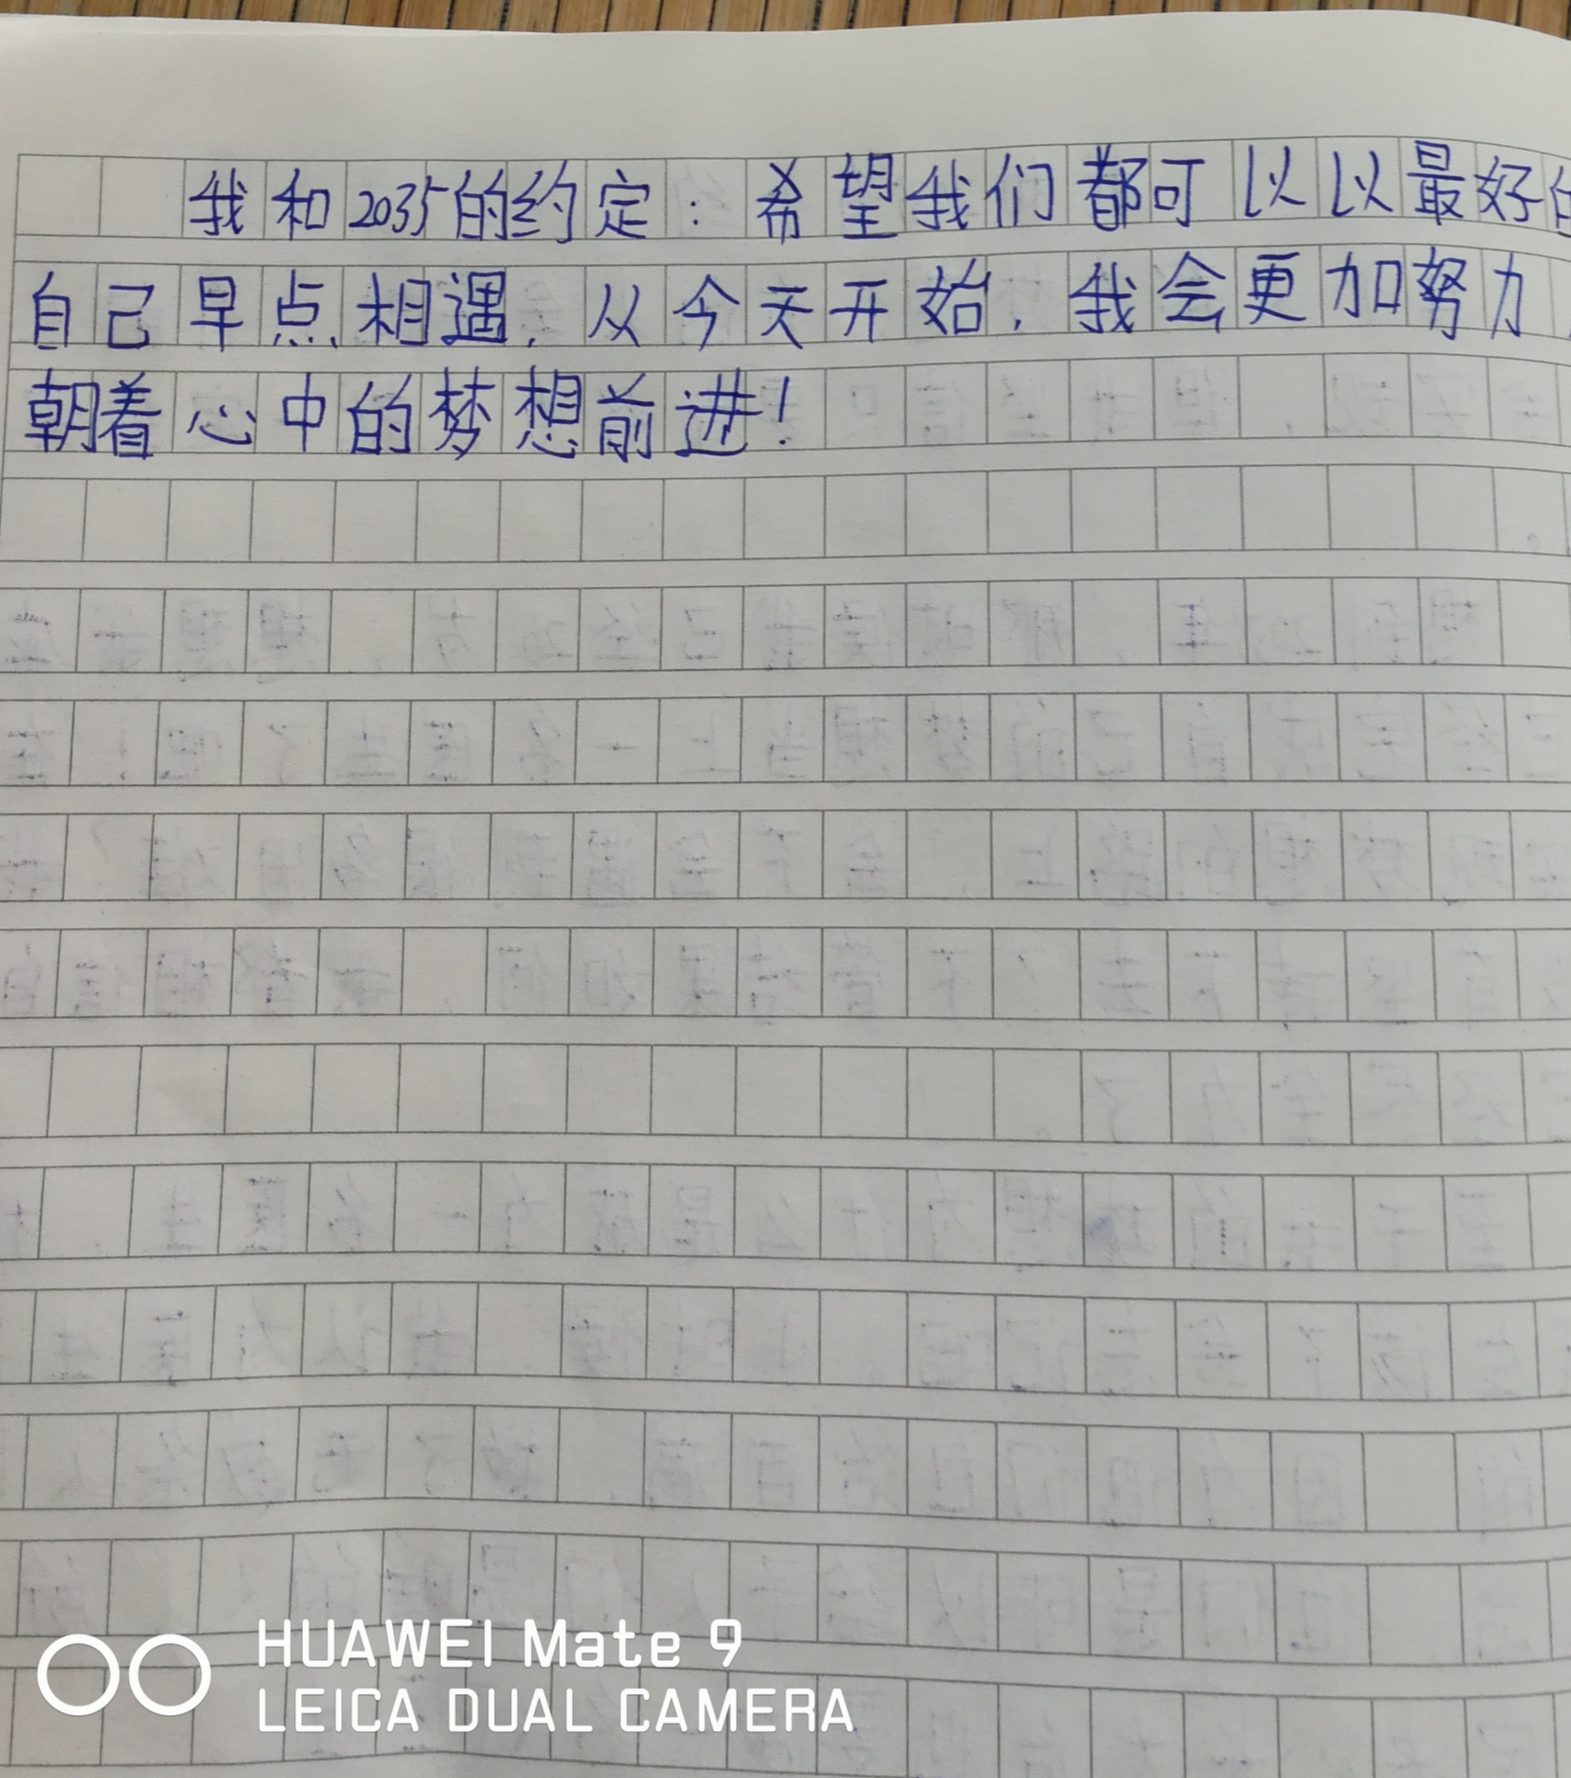 我和2035的约定：希望我们都可以以最好的
自己早点相遇，从今天开始，我会更加努力，
朝着心中的梦想前进！
HUAWEI Mate 9
LEICA DUAL CAMERA